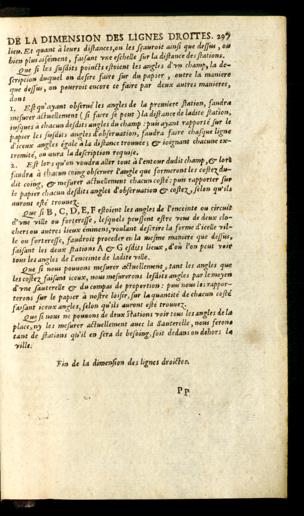 DE LA DIMENSION DES LIGNES DROITES. 297
lieu. Et quant à leurs distances, on les sçauroit ainsi que dessus, ou
bien plus aisément, faisant vne eschelle sur la distance des stations.
Que si les susdits poincts estoient les angles d'vn champ, la de-
scription duquel on desire faire sur du papier, outre la maniere
que dessus, on pourroit encore ce faire par deux autres manieres,
dont
1. Est qu'ayant obserué les angles de la premiere station, faudra
mesurer actuellement (si faire se peut) la distance de ladite station,
iusques à chacun desdits angles du champ: puis ayant rapporté sur le
papier les susdits angles d'obseruation, faudra faire chasque ligne
d'iceux angles égale à la distance trouuee; & ioignant chacune ex-
tremité, on aura la description requise.
2. Est lors qu'on voudra aller tout à l'entour dudit champ, & lors
faudra à chacun coing obseruer l'angle que formeront les costez du-
dit coing, & mesurer actuellement chacun costé: puis rapporter sur
le papier chacun desdits angles d'obseruation & costez, selon qu'ils
auront esté trouuez.
Que si B, C, D, E, F estoient les angles de l'enceinte ou circuit
d'vne ville ou forteresse, lesquels peussent estre veus de deux clo-
chers ou autres lieux eminens, voulant desirire la forme d'icelle vil-
le ou forteresse, faudroit proceder en la mesme maniere que dessus,
faisant les deux stations A & G esdits lieux, d'où l'on peut voir
tous les angles de l'enceinte de ladite ville.
Que si nous pouuons mesurer actuellement, tant les angles que
les costez faisant iceux, nous mesurerons lesdits angles par le moyen
d'vne sauterelle & du compas de proportion: puis nous les rappor-
terons sur le papier à nostre loisir, sur la quantité de chacun costé
faisant iceux angles, selon qu'ils auront esté trouuez.
Que si nous ne pouuons de deux stations voir tous les angles de la
place, ny les mesurer actuellement auec la Sauterelle, nous ferons
tant de stations qu'il en sera de besoing, soit dedans ou dehors la
ville.
Fin de la dimension des lignes droictes.
Pp